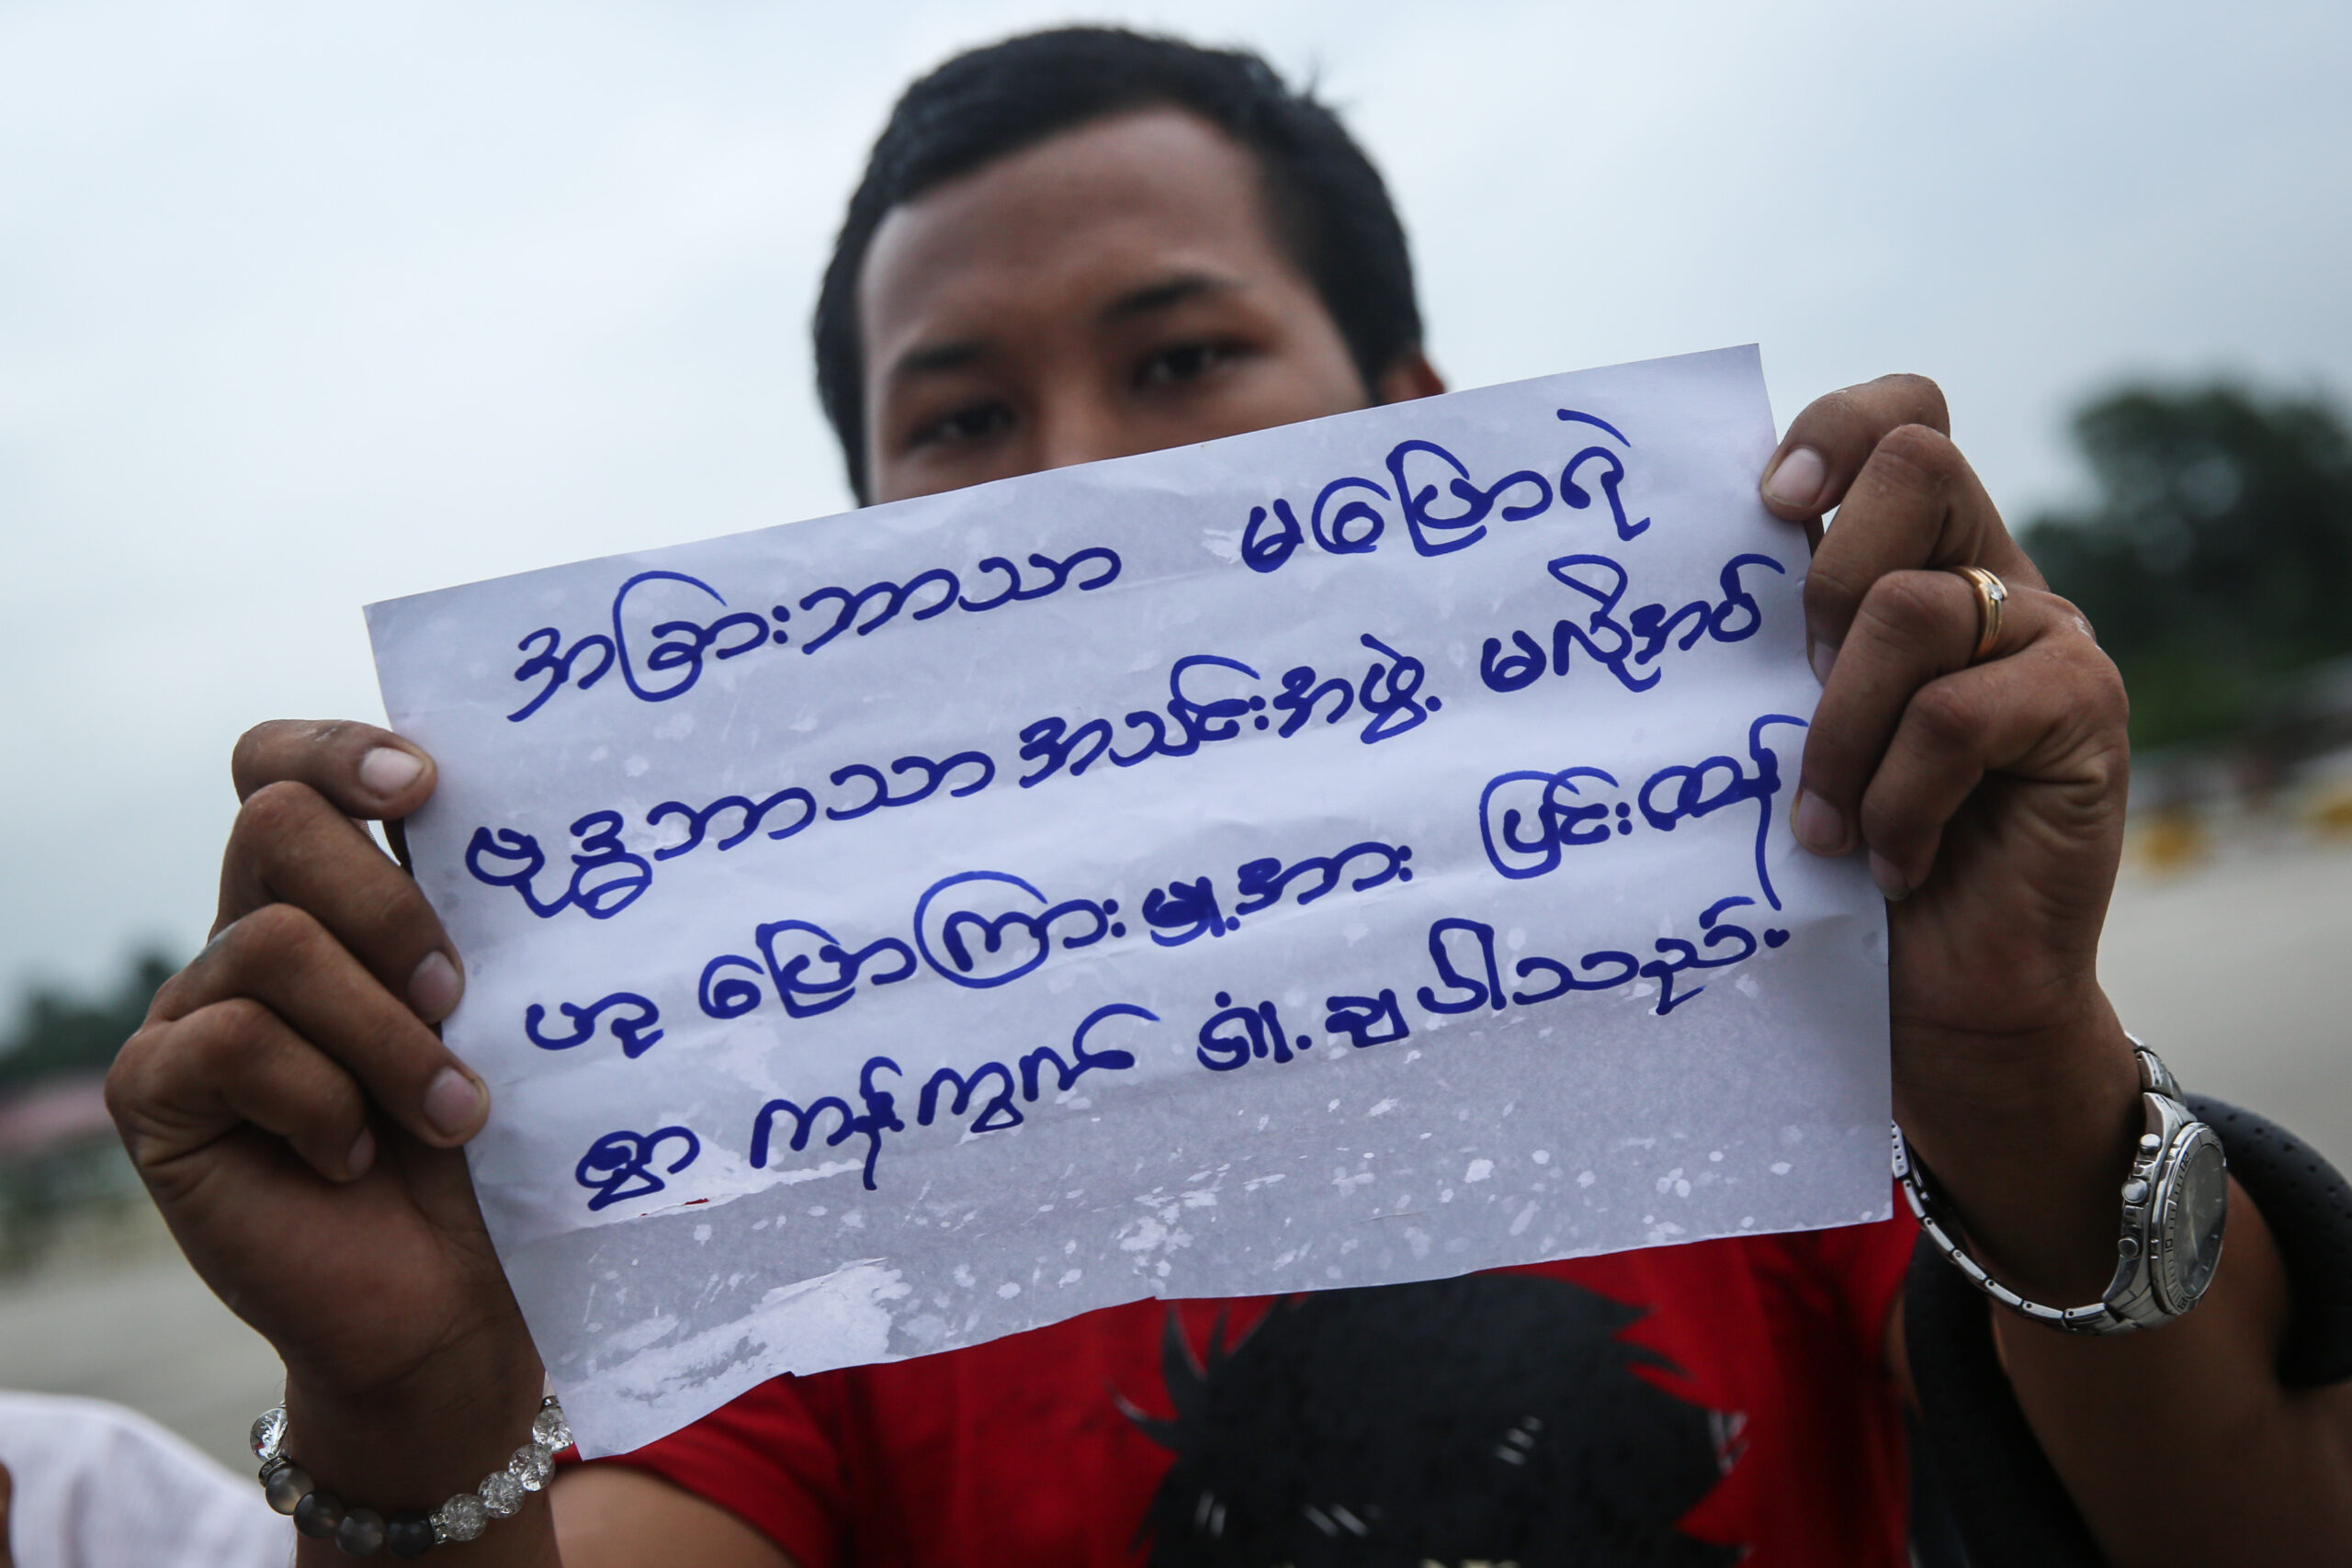 အခြားဘာသာ မပြောရဲ
ဗုဒ္ဓဘာသာအသင်းအဖွဲ့ မလိုအပ်
ဟု ပြောကြားမှု့အား ပြင်းထန်
စွာ ကန့်ကွက် ရှုံ့ချပါသည်.